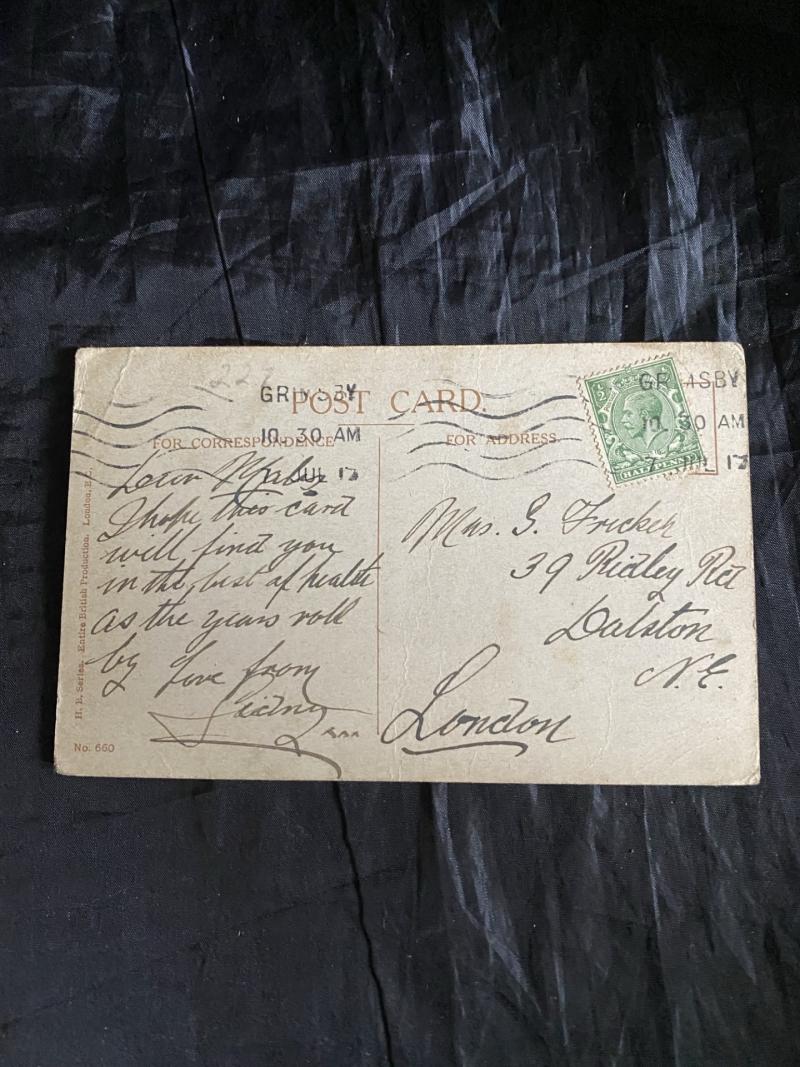 GRIMSBY
10. 30 AM
JUL 17
POST CARD.
FOR CORRESPONDENCE
FOR ADDRESS.
GRIMSBY
10. 30 AM
7 JUL 17
HALFPENNY
Dear
I hope this card
will find you
in the best of health
as the years roll
by Love from
Sidney xxx
Mrs. G. Fricker
39 Ridley Rd
Dalston
N.E.
London
H. B. Series. Entire British Production. London, E.C.
No. 660